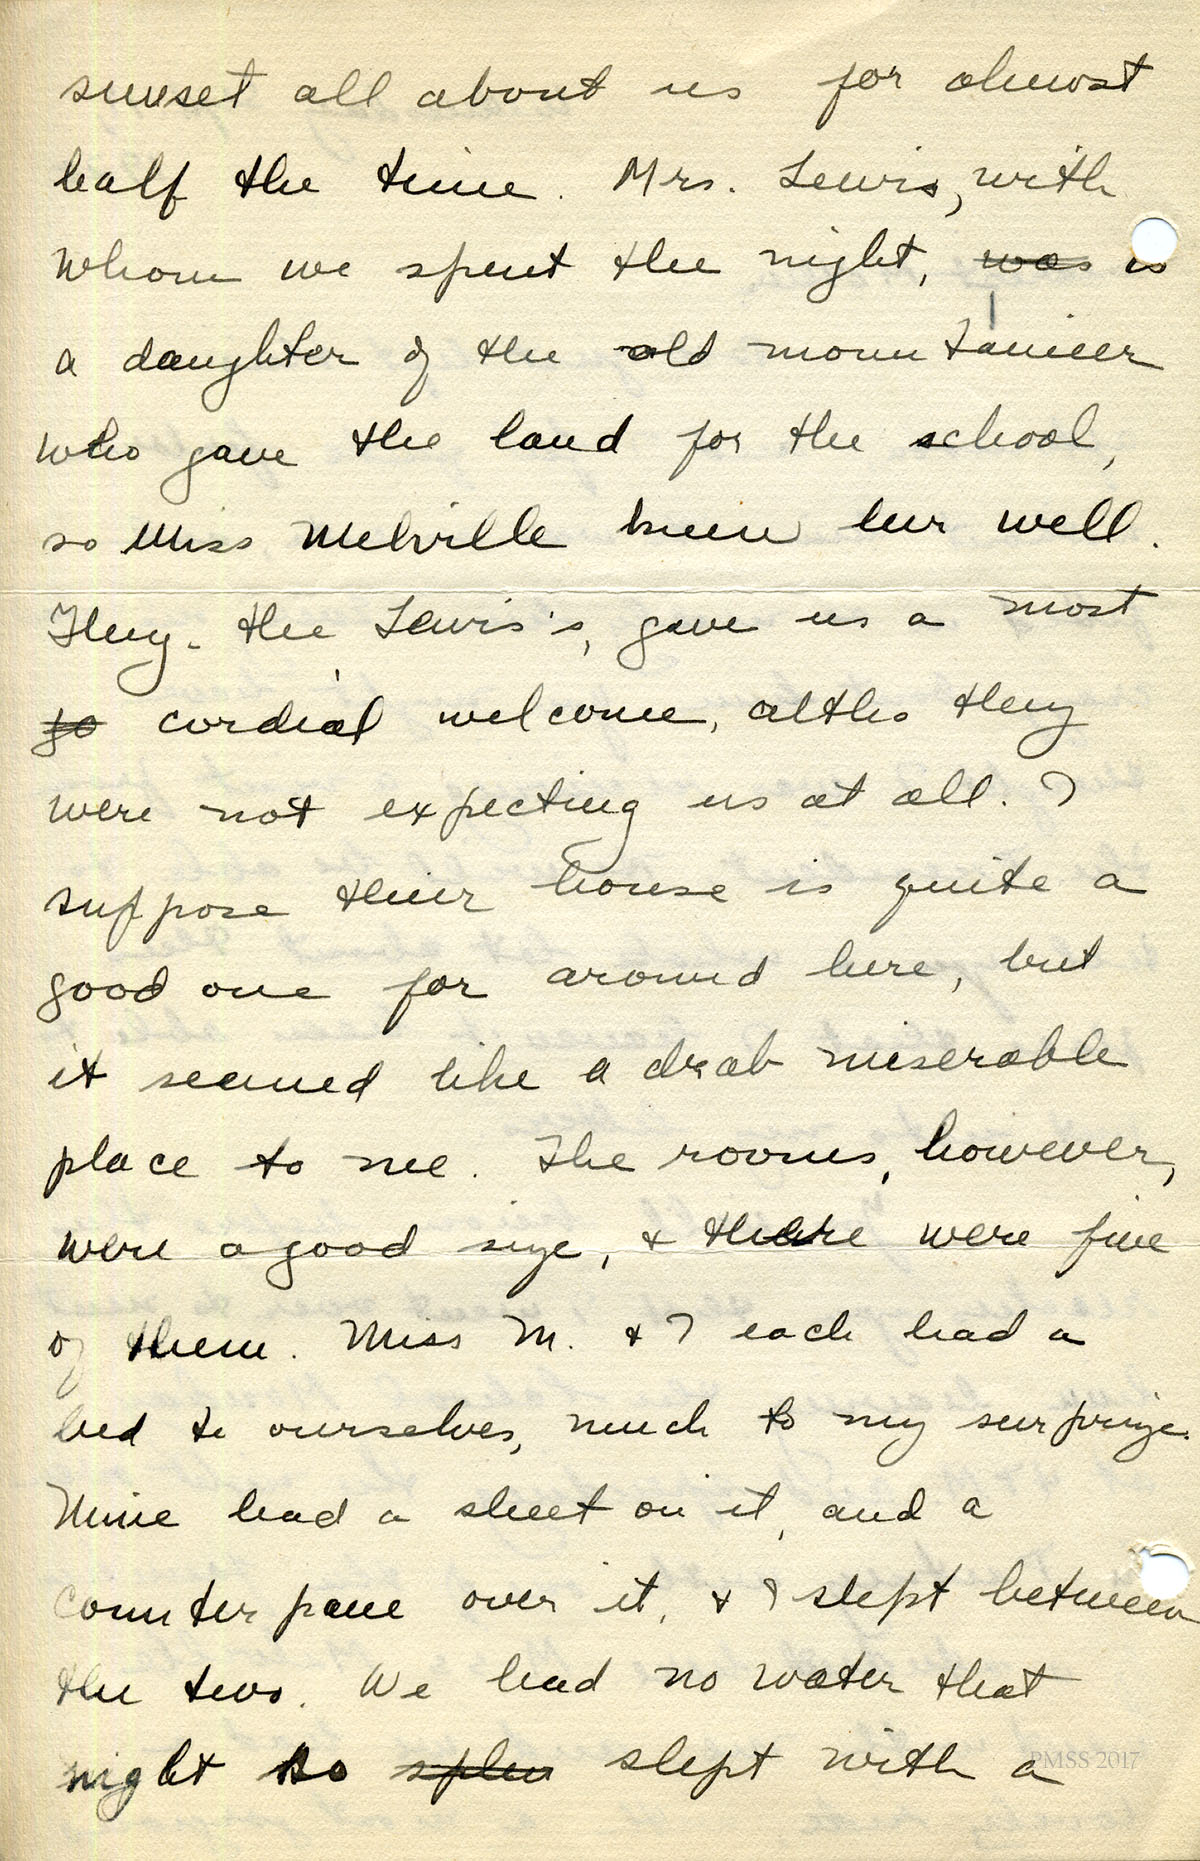 sunset all about us for almost
half the time. Mrs. Lewis, with
whom we spent the night, was is
a daughter of the old mountaineer
who gave the land for the school,
so Miss Melville knew her well.
They - the Lewis's, gave us a most
go cordial welcome, altho they
were not expecting us at all. I
suppose their house is quite a
good one for around here, but
it seemed like a drab miserable
place to me. The rooms, however,
were a good size, & there were five
of them. Miss M. & I each had a
bed to ourselves, much to my surprize.
Mine had a sheet on it, and a
counterpane over it, & I slept between
the two. We had no water that
night so splen slept with a
PMSS 2017